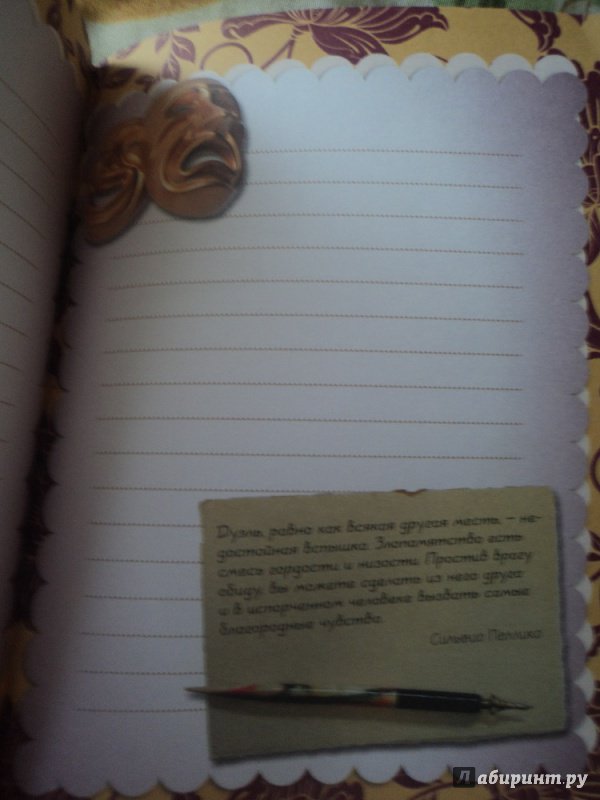 Дуэль, равно как всякая другая месть, – не-
достойная вспышка. Злопамятство есть
смесь гордости и низости. Простив врагу
обиду, вы можете сделать из него друга
и в испорченном человеке вызвать самые
благородные чувства.
Сильвио Пеллико
Лабиринт.ру